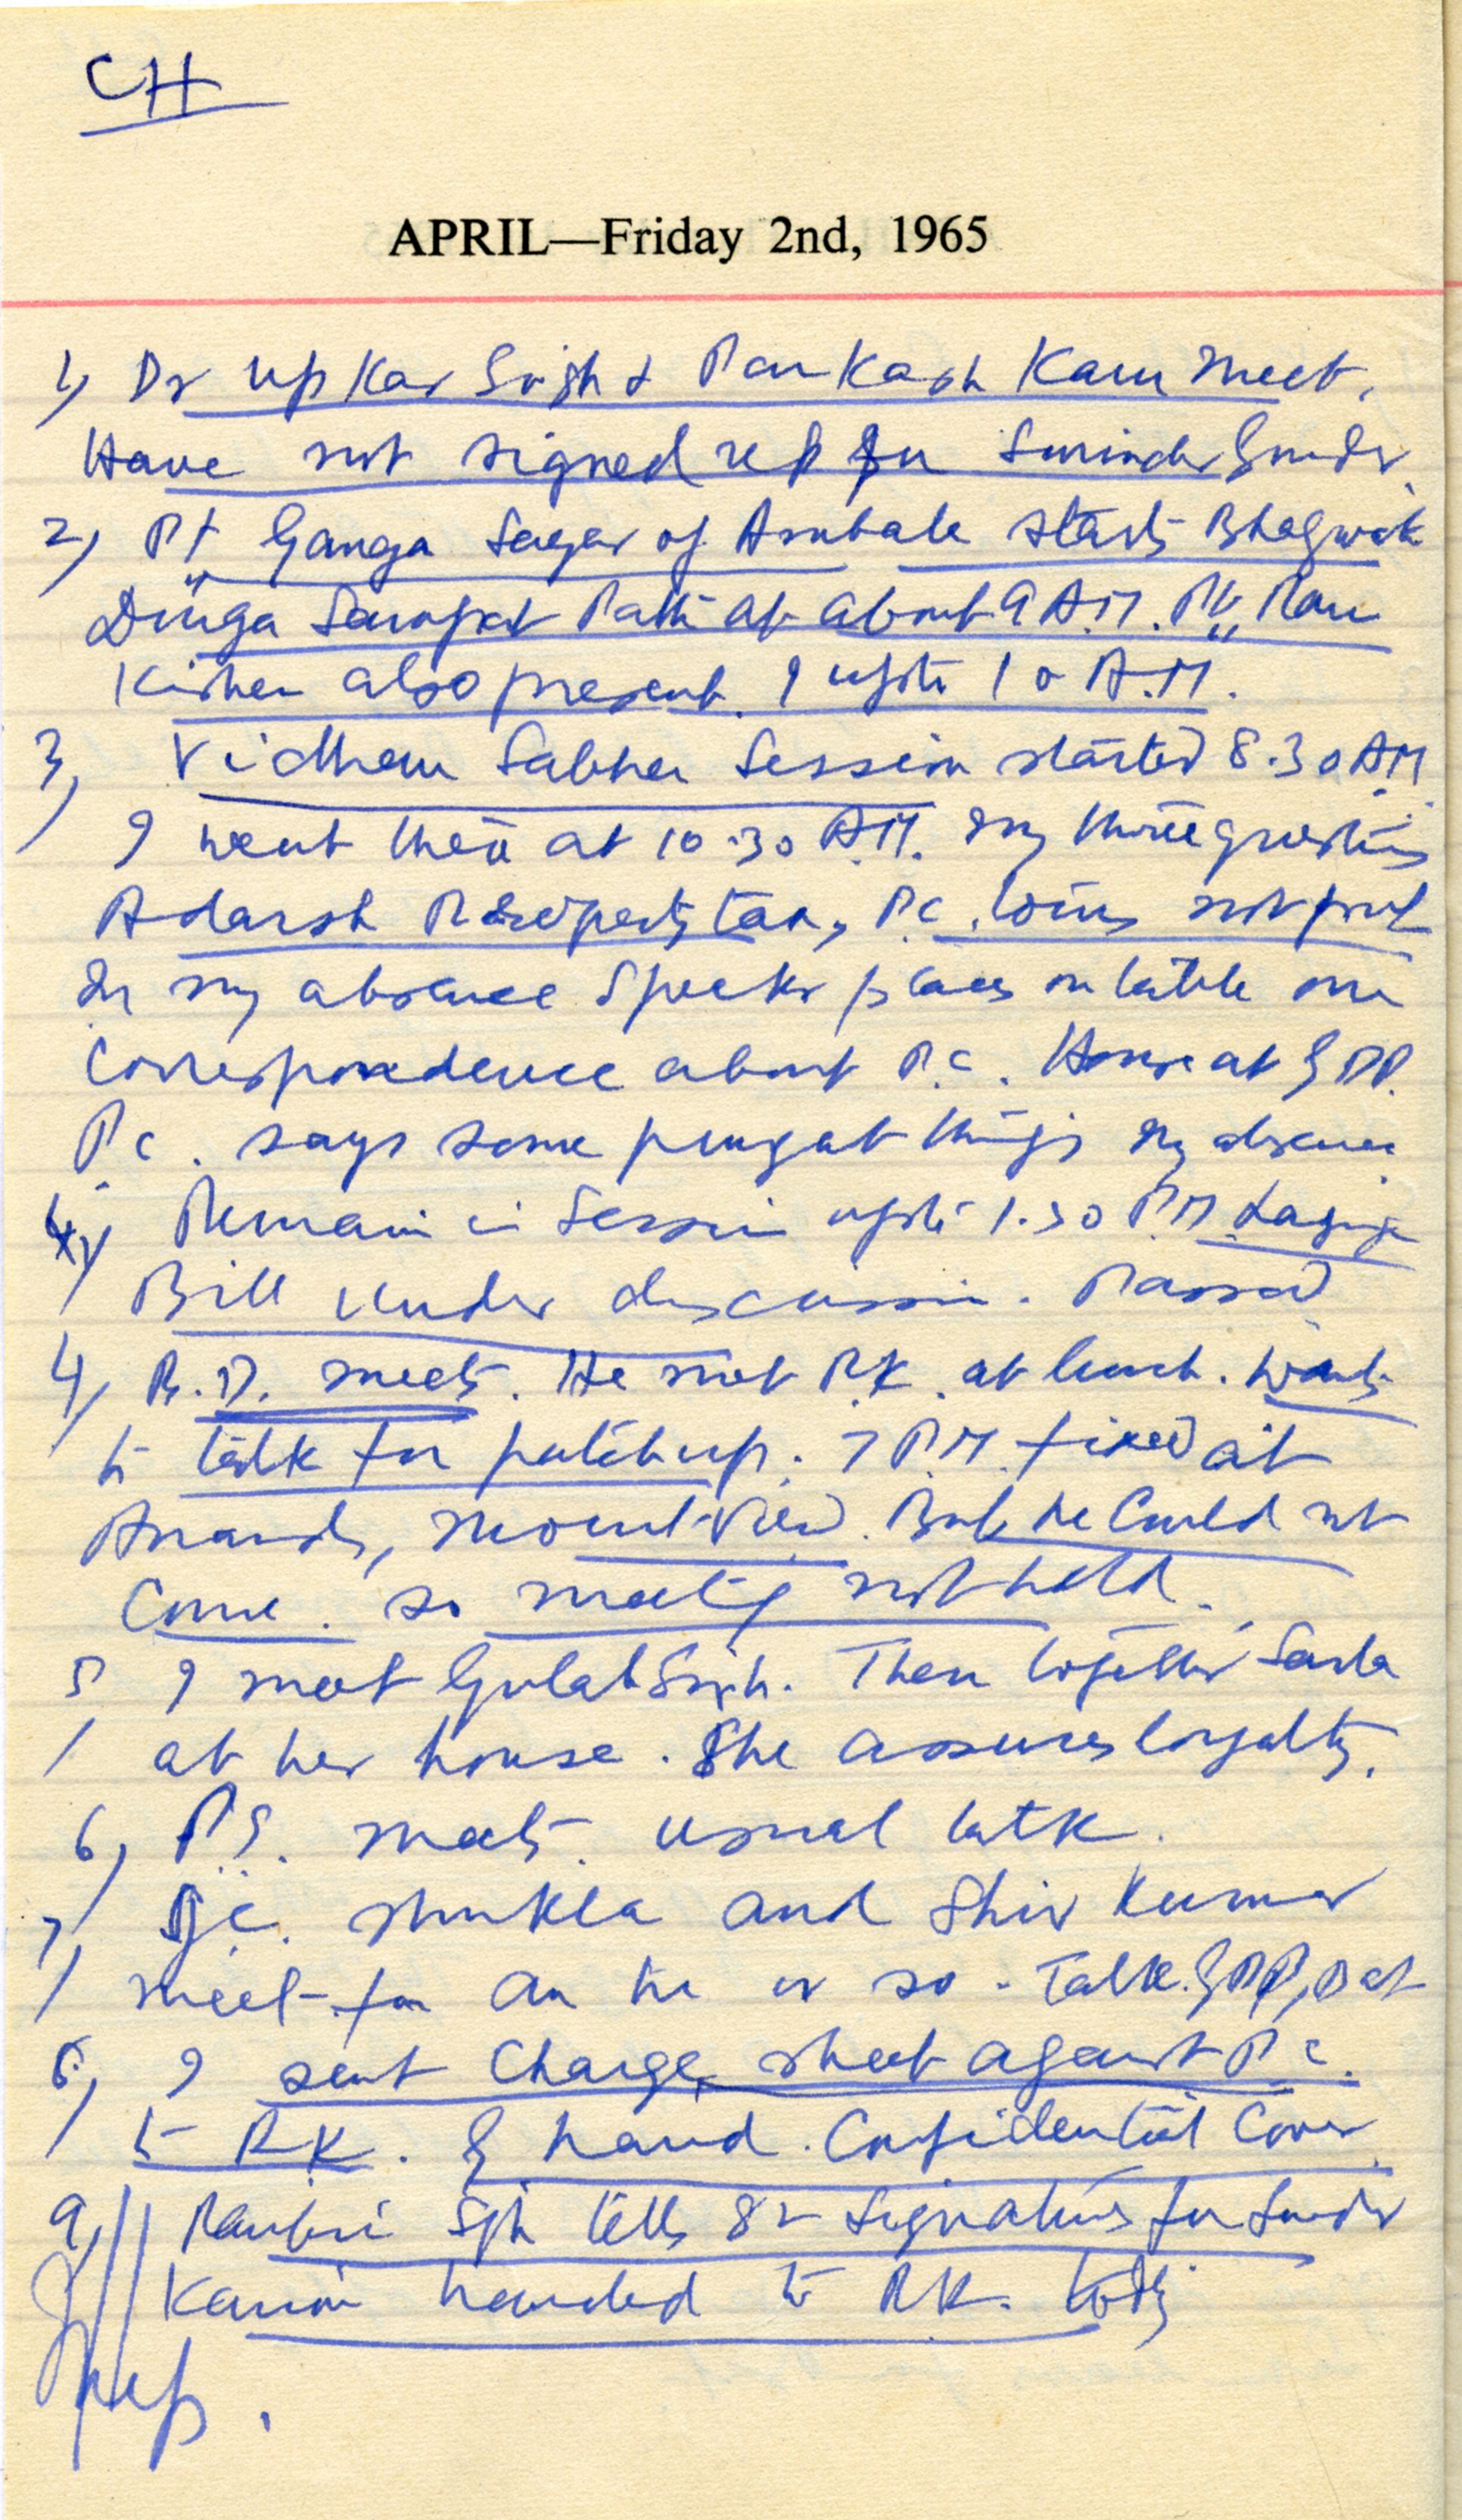 CH
APRIL—Friday 2nd, 1965
1) Dr Up Kar Singh & Kaur meet.
Have not signed rep for Surinder
2) Pt Ganga Sagar of Ambala starts Bhagwati
Durga Path at about 9 A.M. Pt Ram
Kishen also present. I upto 10 A.M.
3) Vidhan Sabha Session started 8.30 AM
I went there at 10.30 A.M. my three questions
Adarsh Property tax, P.C. not
In my absence Speaker places on table our
Correspondence about P.C. House at
P.C. says some pungat things my absence
4) Remain in Session upto 1.30 P.M.
Bill under discussion. Passed
4) B.D. meets. He met R.K. at lunch. Wants
to talk for patch up. 7 P.M. fixed at
Anands, Mount View. But he Could not
Come. so meeting not held.
5) I meet Gulab Singh. Then together Sarla
at her house. She assures loyalty.
6) P.S. meets. usual talk.
7) Shukla and Shiv Kumar
meet for an hr or so. Talk
8) I sent Charge sheet against P.C.
to R.K. hand. Confidential Cover
9) Ranbir Sgh tells 82 Signatures for
handed to RK. today